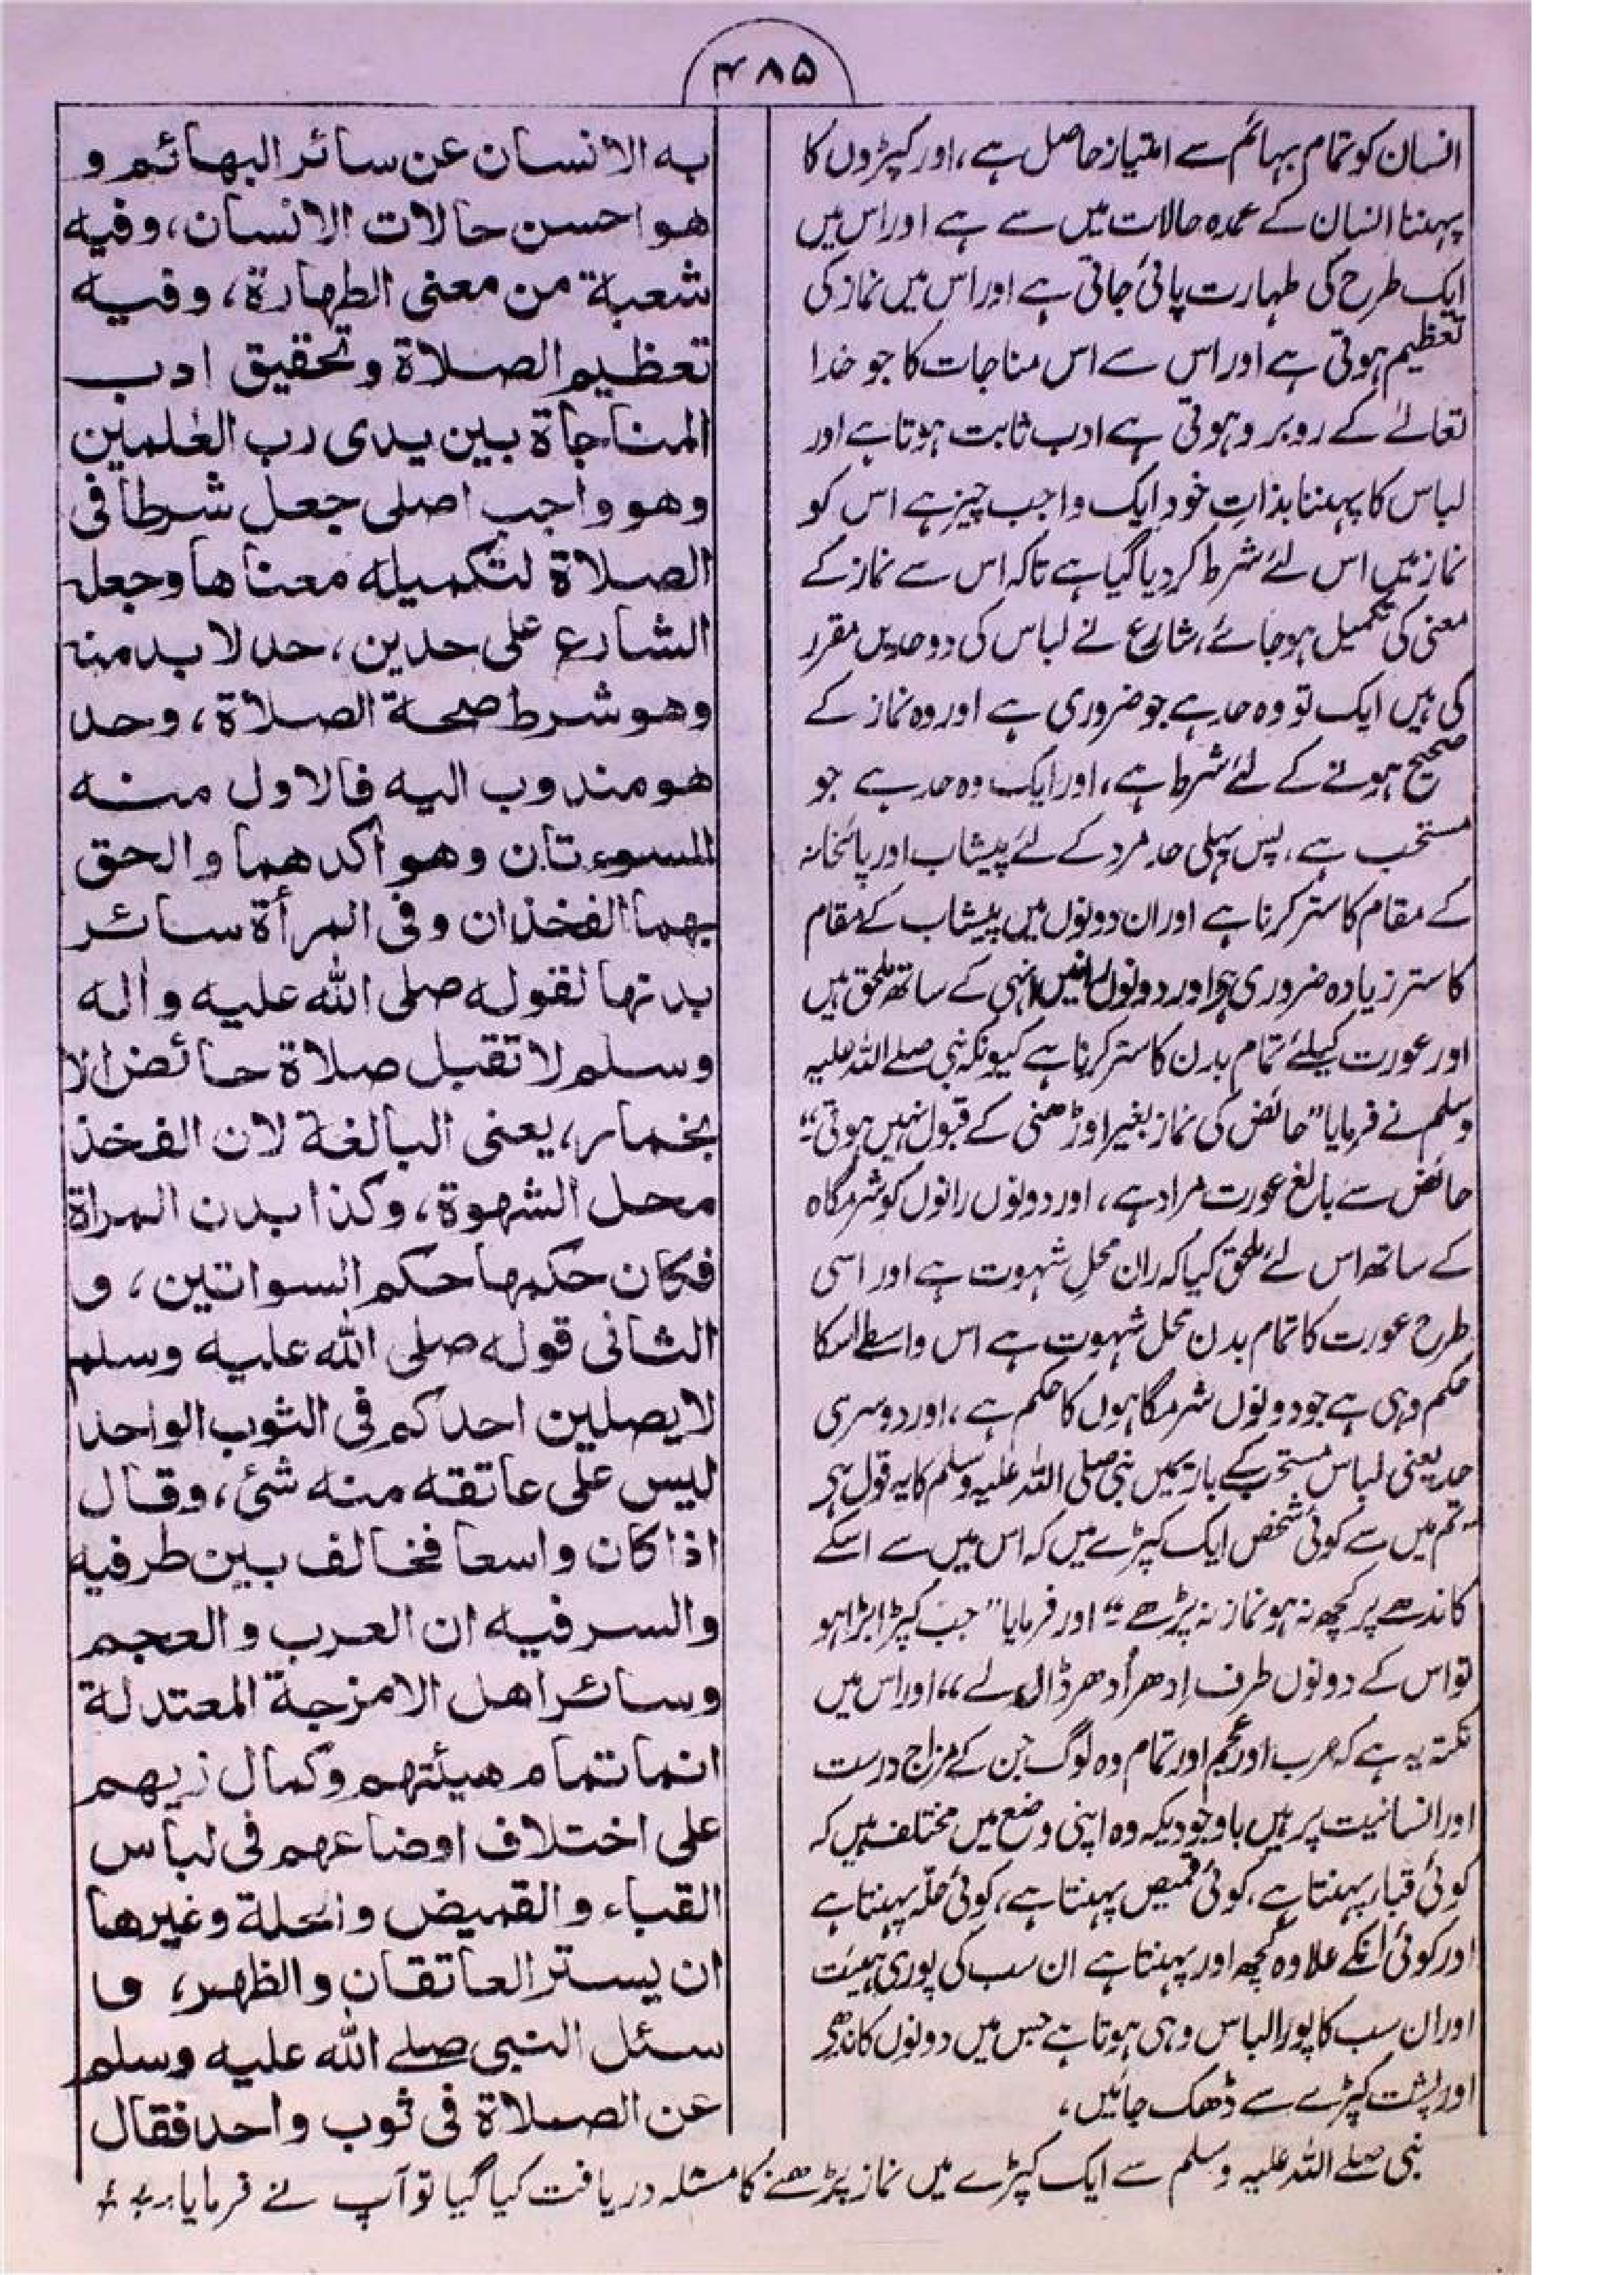 ۴۸۵
انسان کو تمام بہائم سے امتیاز حاصل ہے، اور کپڑوں کا
پہننا انسان کے عمدہ حالات میں سے ہے اور اس میں
ایک طرح کی طہارت پائی جاتی ہے اور اس میں نماز کی
تعظیم ہوتی ہے اور اس سے اس مناجات کا جو خدا
تعالےٰ کے روبرو ہوتی ہے ادب ثابت ہوتا ہے اور
لباس کا پہننا بذاتِ خود ایک واجب چیز ہے اس کو
نماز میں اس لئے شرط کر دیا گیا ہے تاکہ اس سے نماز کے
معنی کی تکمیل ہو جائے، شارع نے لباس کی دو حدیں مقرر
کی ہیں ایک تو وہ حد ہے جو ضروری ہے اور وہ نماز کے
صحیح ہونے کے لئے شرط ہے، اور ایک وہ حد ہے جو
مستحب ہے، پس پہلی حد مرد کے لئے پیشاب اور پائخانہ
کے مقام کا ستر کرنا ہے اور ان دونوں میں پیشاب کے مقام
کا ستر زیادہ ضروری ہے اور دونوں رانیں انہی کے ساتھ ملحق ہیں
اور عورت کیلئے تمام بدن کا ستر کرنا ہے کیونکہ نبی صلے اللہ علیہ
وسلم نے فرمایا ”حائض کی نماز بغیر اوڑھنی کے قبول نہیں ہوتی“
حائض سے بالغ عورت مراد ہے، اور دونوں رانوں کو شرمگاہ
کے ساتھ اس لئے ملحق کیا کہ ران محلِ شہوت ہے اور اسی
طرح عورت کا تمام بدن محل شہوت ہے اس واسطے اسکا
حکم وہی ہے جو دونوں شرمگاہوں کا حکم ہے، اور دوسری
حد یعنی لباس مستحب کے بارے میں نبی صلی اللہ علیہ وسلم کا یہ قول ہے
”تم میں سے کوئی شخص ایک کپڑے میں کہ اس میں سے اسکے
کاندھے پر کچھ نہ ہو نماز نہ پڑھے“ اور فرمایا ”جب کپڑا بڑا ہو
تو اس کے دونوں طرف اِدھر اُدھر ڈال لے“ اور اس میں
نکتہ یہ ہے کہ عرب اور عجم اور تمام وہ لوگ جن کے مزاج درست
اور انسانیت پر ہیں باوجودیکہ وہ اپنی وضع میں مختلف ہیں کہ
کوئی قبا پہنتا ہے، کوئی قمیص پہنتا ہے، کوئی حلّہ پہنتا ہے
اور کوئی انکے علاوہ کچھ اور پہنتا ہے ان سب کی پوری ہیئت
اور ان سب کا پورا لباس وہی ہوتا ہے جس میں دونوں کاندھے
اور پشت کپڑے سے ڈھک جائیں،
به الانسان عن سائر البهائم و
هو احسن حالات الانسان، وفيه
شعبة من معنى الطهارة، وفيه
تعظيم الصلاة وتحقيق ادب
المناجاة بين يدى رب العٰلمين
وهو واجب اصلى جعل شرطا فى
الصلاة لتكميله معناها وجعله
الشارع على حدين، حد لا بد منه
وهو شرط صحة الصلاة، وحد
هو مندوب اليه فالاول منه
السوءتان وهو آكدهما والحق
بهما الفخذان وفى المرأة سائر
بدنها لقوله صلى الله عليه واله
وسلم لا تقبل صلاة حائض الا
بخمار، يعنى البالغة لان الفخذ
محل الشهوة، وكذا بدن المراة
فكان حكمها حكم السواتين، و
الثانى قوله صلى الله عليه وسلم
لا يصلين احدكم فى الثوب الواحد
ليس على عاتقه منه شئ، وقال
اذا كان واسعا فخالف بين طرفيه
والسر فيه ان العرب والعجم
وسائر اهل الامزجة المعتدلة
انما تمام هيئتهم وكمال زيهم
على اختلاف اوضاعهم فى لباس
القباء والقميص والحلة وغيرها
ان يستر العاتقان والظهر، و
سئل النبى صلے الله عليه وسلم
عن الصلاة فى ثوب واحد فقال
نبی صلے اللہ علیہ وسلم سے ایک کپڑے میں نماز پڑھنے کا مسئلہ دریافت کیا گیا تو آپ نے فرمایا